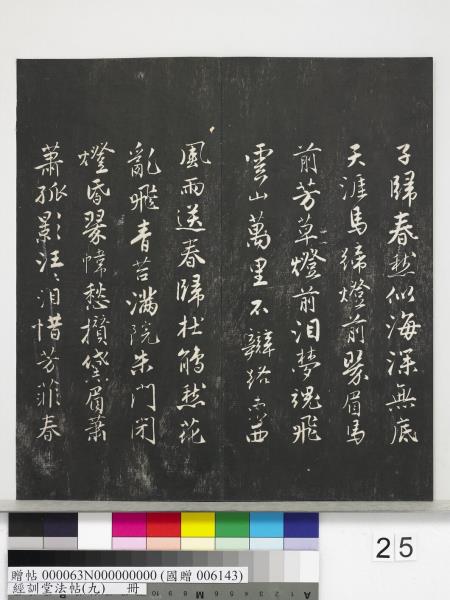 子歸春愁似海深無底
天涯馬蹄燈前翠眉馬
前芳草燈前泪夢魂飛
雲山萬里不辯路東西
風雨送春歸杜鵑愁花
亂飛青苔滿院朱門閉
燈昏翠幃愁攢黛眉蕭
蕭孤影汪汪泪惜芳菲春
25
贈帖 000063N000000000 (國贈 006143)
經訓堂法帖(九) 冊